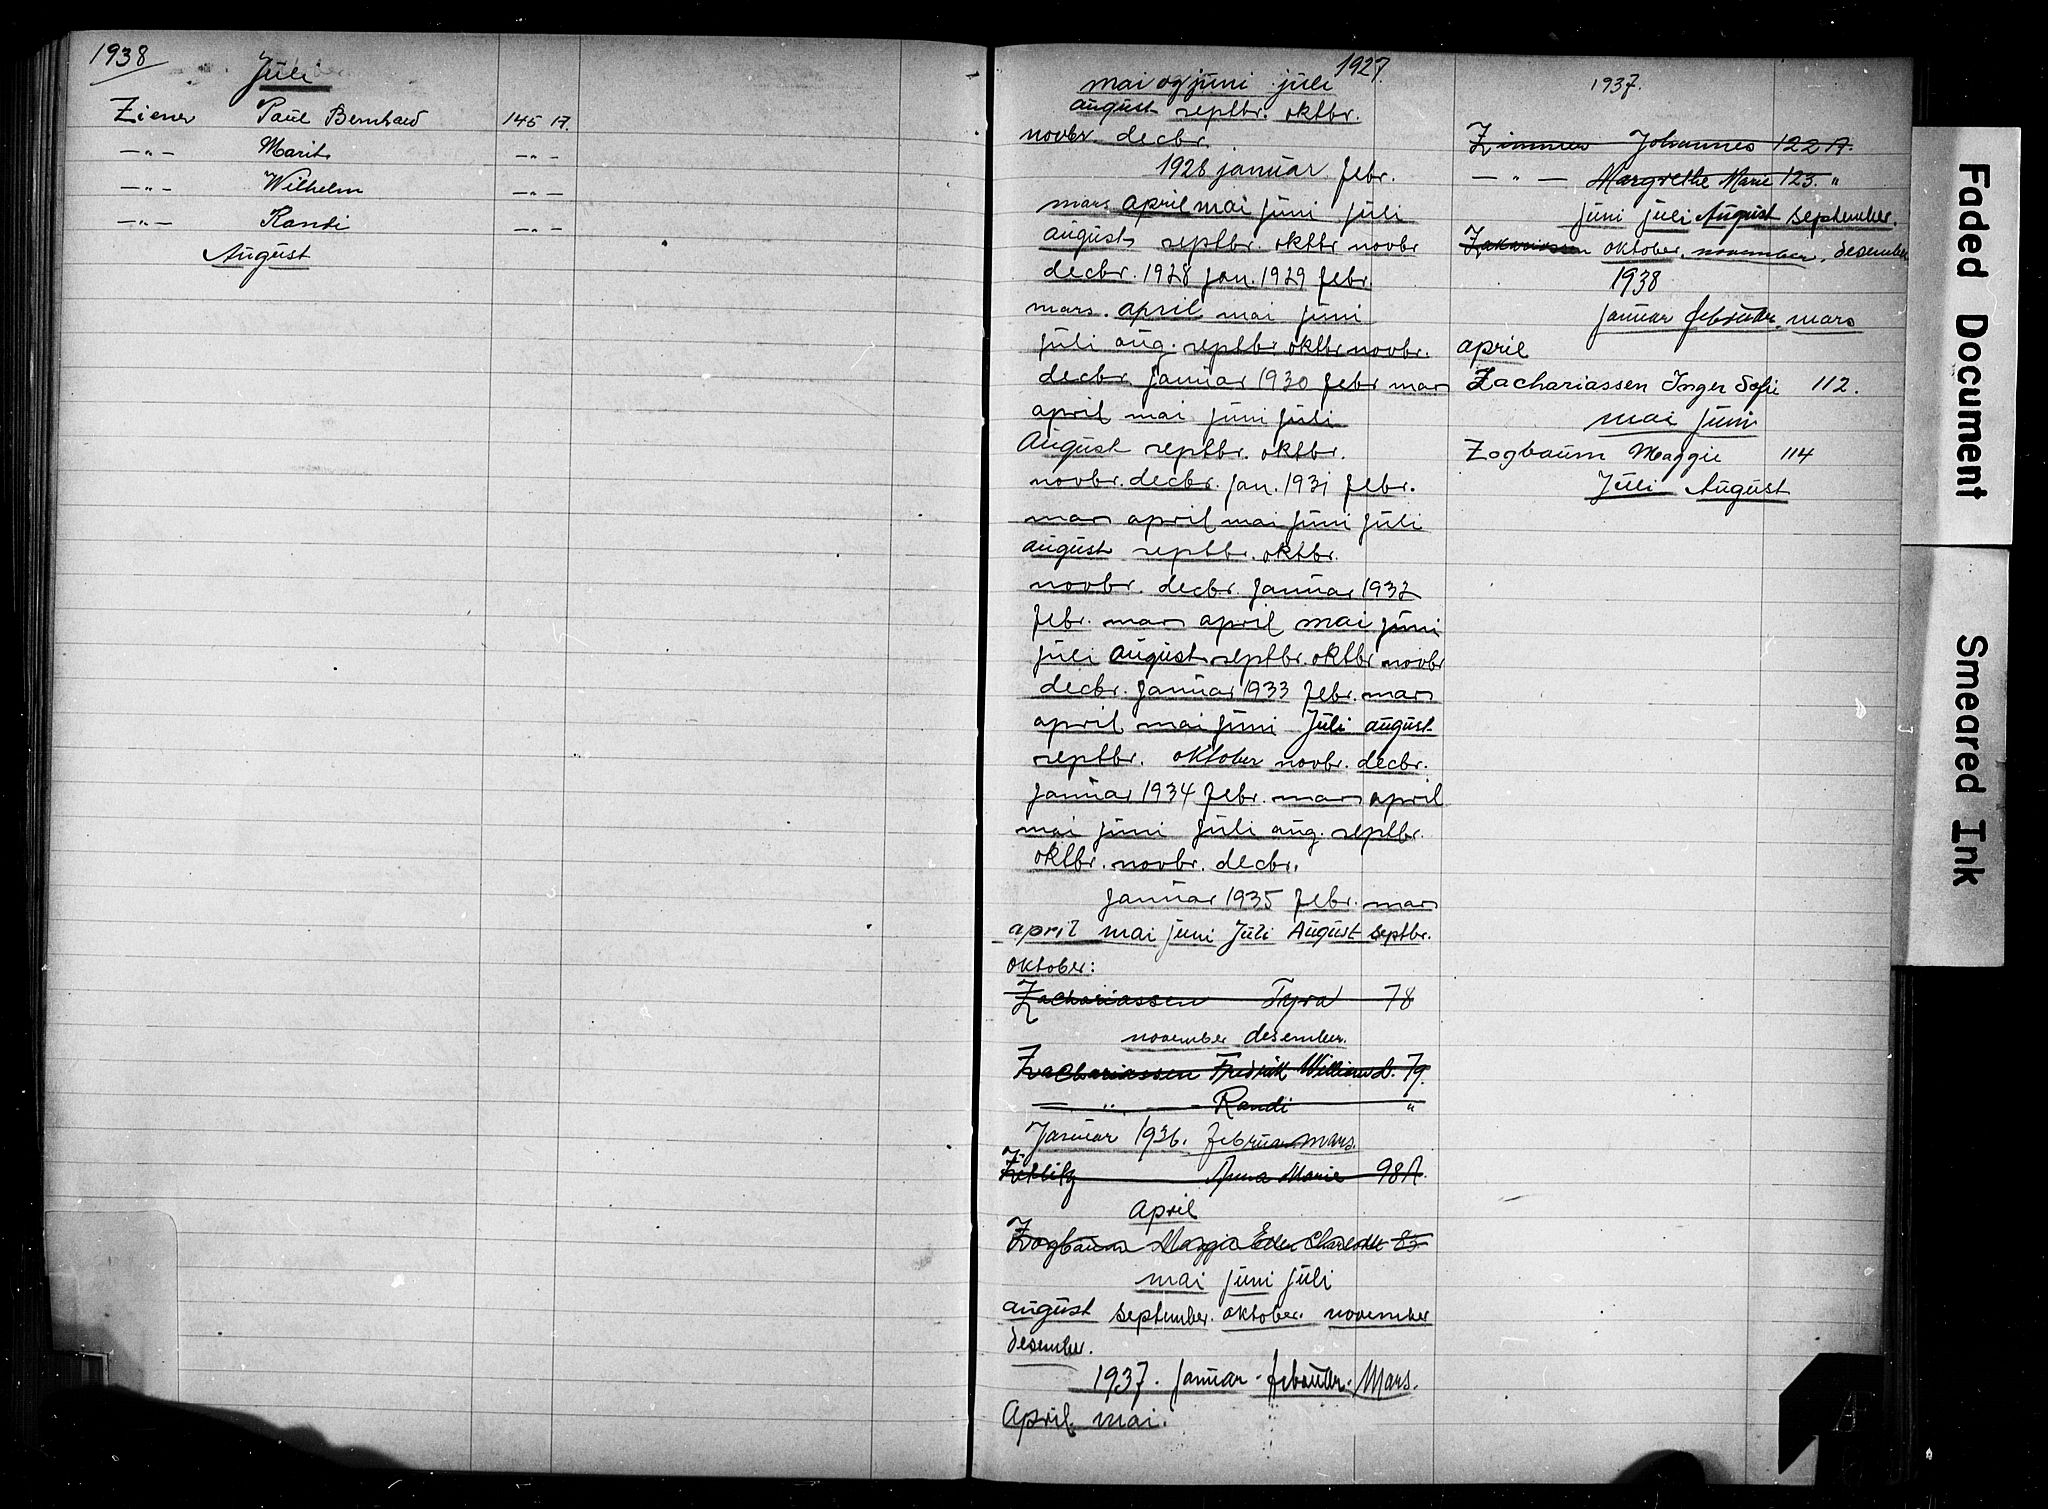 1938
Juli
Ziener Paul Bernhard 145 17.
—„— Marit —„—
—„— Wilhelm —„—
—„— Randi —„—
August
1927
mai og juni juli
august septbr. oktbr.
novbr. decbr.
1928 januar febr.
mars april mai juni juli
august septbr. oktbr novbr
decbr. 1928 jan. 1929 febr.
mars. april mai juni
juli aug. septbr oktbr novbr.
decbr. januar 1930 febr mars
april mai juni juli
August septbr. oktbr.
novbr. decbr. jan. 1931 febr.
mars april mai juni juli
august septbr. oktbr.
novbr. decbr. januar 1932
febr. mars april mai juni
juli august septbr. oktbr novbr
decbr. januar 1933 febr. mars
april mai juni Juli august
septbr. oktober novbr. decbr.
januar 1934 febr. mars april
mai juni juli aug. septbr.
oktbr. novbr. decbr.
januar 1935 febr. mars
april mai juni Juli August septbr.
oktober:
Zachariassen Tyra 78
november desember.
Zachariassen Fredrik 79.
— „ — Randi "
Januar 1936. februar mars.
Anna Marie 98A.
April
Zogbaum Maggie Ellen Charlotte 83
mai juni juli
august september. oktober. november
desember.
1937. januar - februar. Mars.
April mai.
1937.
Zimmer Johannes 122 A.
— „ — Margrethe Marie 123. "
juni juli August september.
Zakariassen oktober. november. desember
1938
januar februar. mars
april
Zachariassen Inger Sofie 112.
mai juni
Zogbaum Maggie 114
Juli August
Faded Document
Smeared Ink